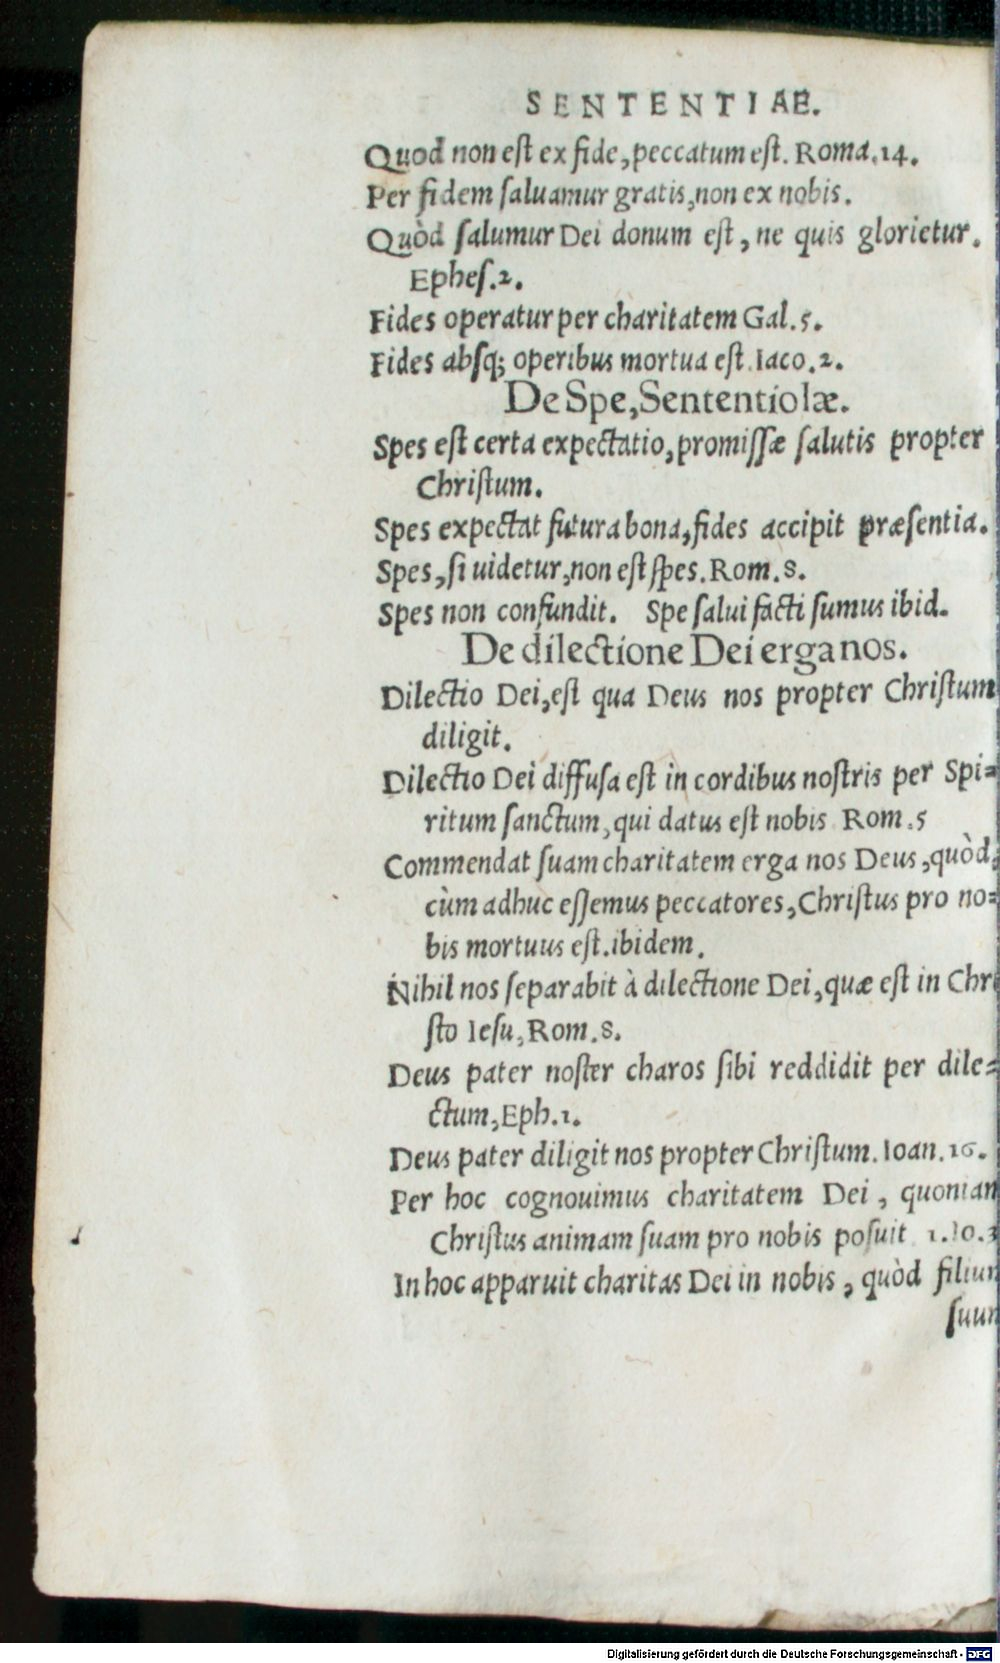 SENTENTIAE.
Quod non est ex fide, peccatum est. Roma. 14.
Per fidem saluamur gratis, non ex nobis.
Quòd salumur Dei donum est, ne quis glorietur.
Ephes. 2.
Fides operatur per charitatem Gal. 5.
Fides absq; operibus mortua est. Iaco. 2.
De Spe, Sententiolæ.
Spes est certa expectatio, promissæ salutis propter
Christum.
Spes expectat futura bona, fides accipit præsentia.
Spes, si uidetur, non est spes. Rom. 8.
Spes non confundit. Spe salui facti sumus ibid.
De dilectione Dei erga nos.
Dilectio Dei, est qua Deus nos propter Christum
diligit.
Dilectio Dei diffusa est in cordibus nostris per Spi=
ritum sanctum, qui datus est nobis Rom. 5
Commendat suam charitatem erga nos Deus, quòd,
cùm adhuc essemus peccatores, Christus pro no=
bis mortuus est. ibidem.
Nihil nos separabit à dilectione Dei, quæ est in Chri
sto Iesu, Rom. 8.
Deus pater noster charos sibi reddidit per dile=
ctum, Eph. 1.
Deus pater diligit nos propter Christum. Ioan. 16.
Per hoc cognouimus charitatem Dei, quoniam
Christus animam suam pro nobis posuit 1. Io. 3
In hoc apparuit charitas Dei in nobis, quòd filium
suum
Digitalisierung gefördert durch die Deutsche Forschungsgemeinschaft - DFG